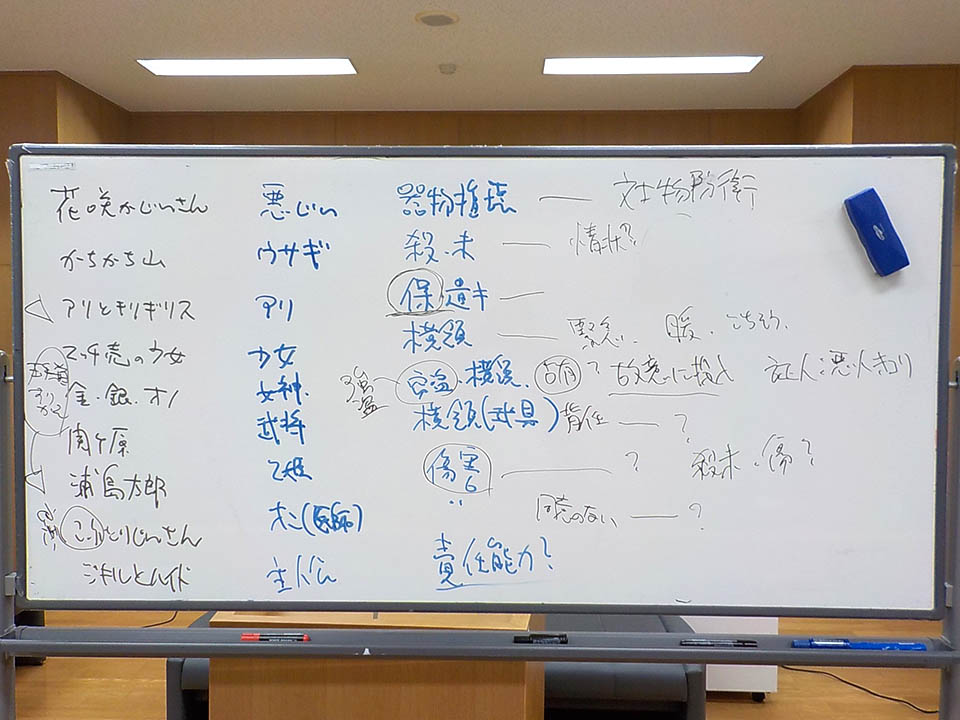 花咲かじいさん 悪じい 器物損壊 — 対物防衛
かちかち山 ウサギ 殺・未 — 情状?
アリとキリギリス アリ 保・遺キ —
マッチ売の少女 少女 横領 — 緊急、暖、ごちそう、
金・銀・オノ 女神 窃盗・横領、 ? 故意に投入 証人:悪人キコリ
強盗
関ヶ原 武将 横領(武具)背任 — ?
浦島太郎 乙姫 傷害 — ? 殺未・傷?
こぶとりじいさん オニ(医師) 〃 同意のない — ?
ジキルとハイド 主人公 責任能力?